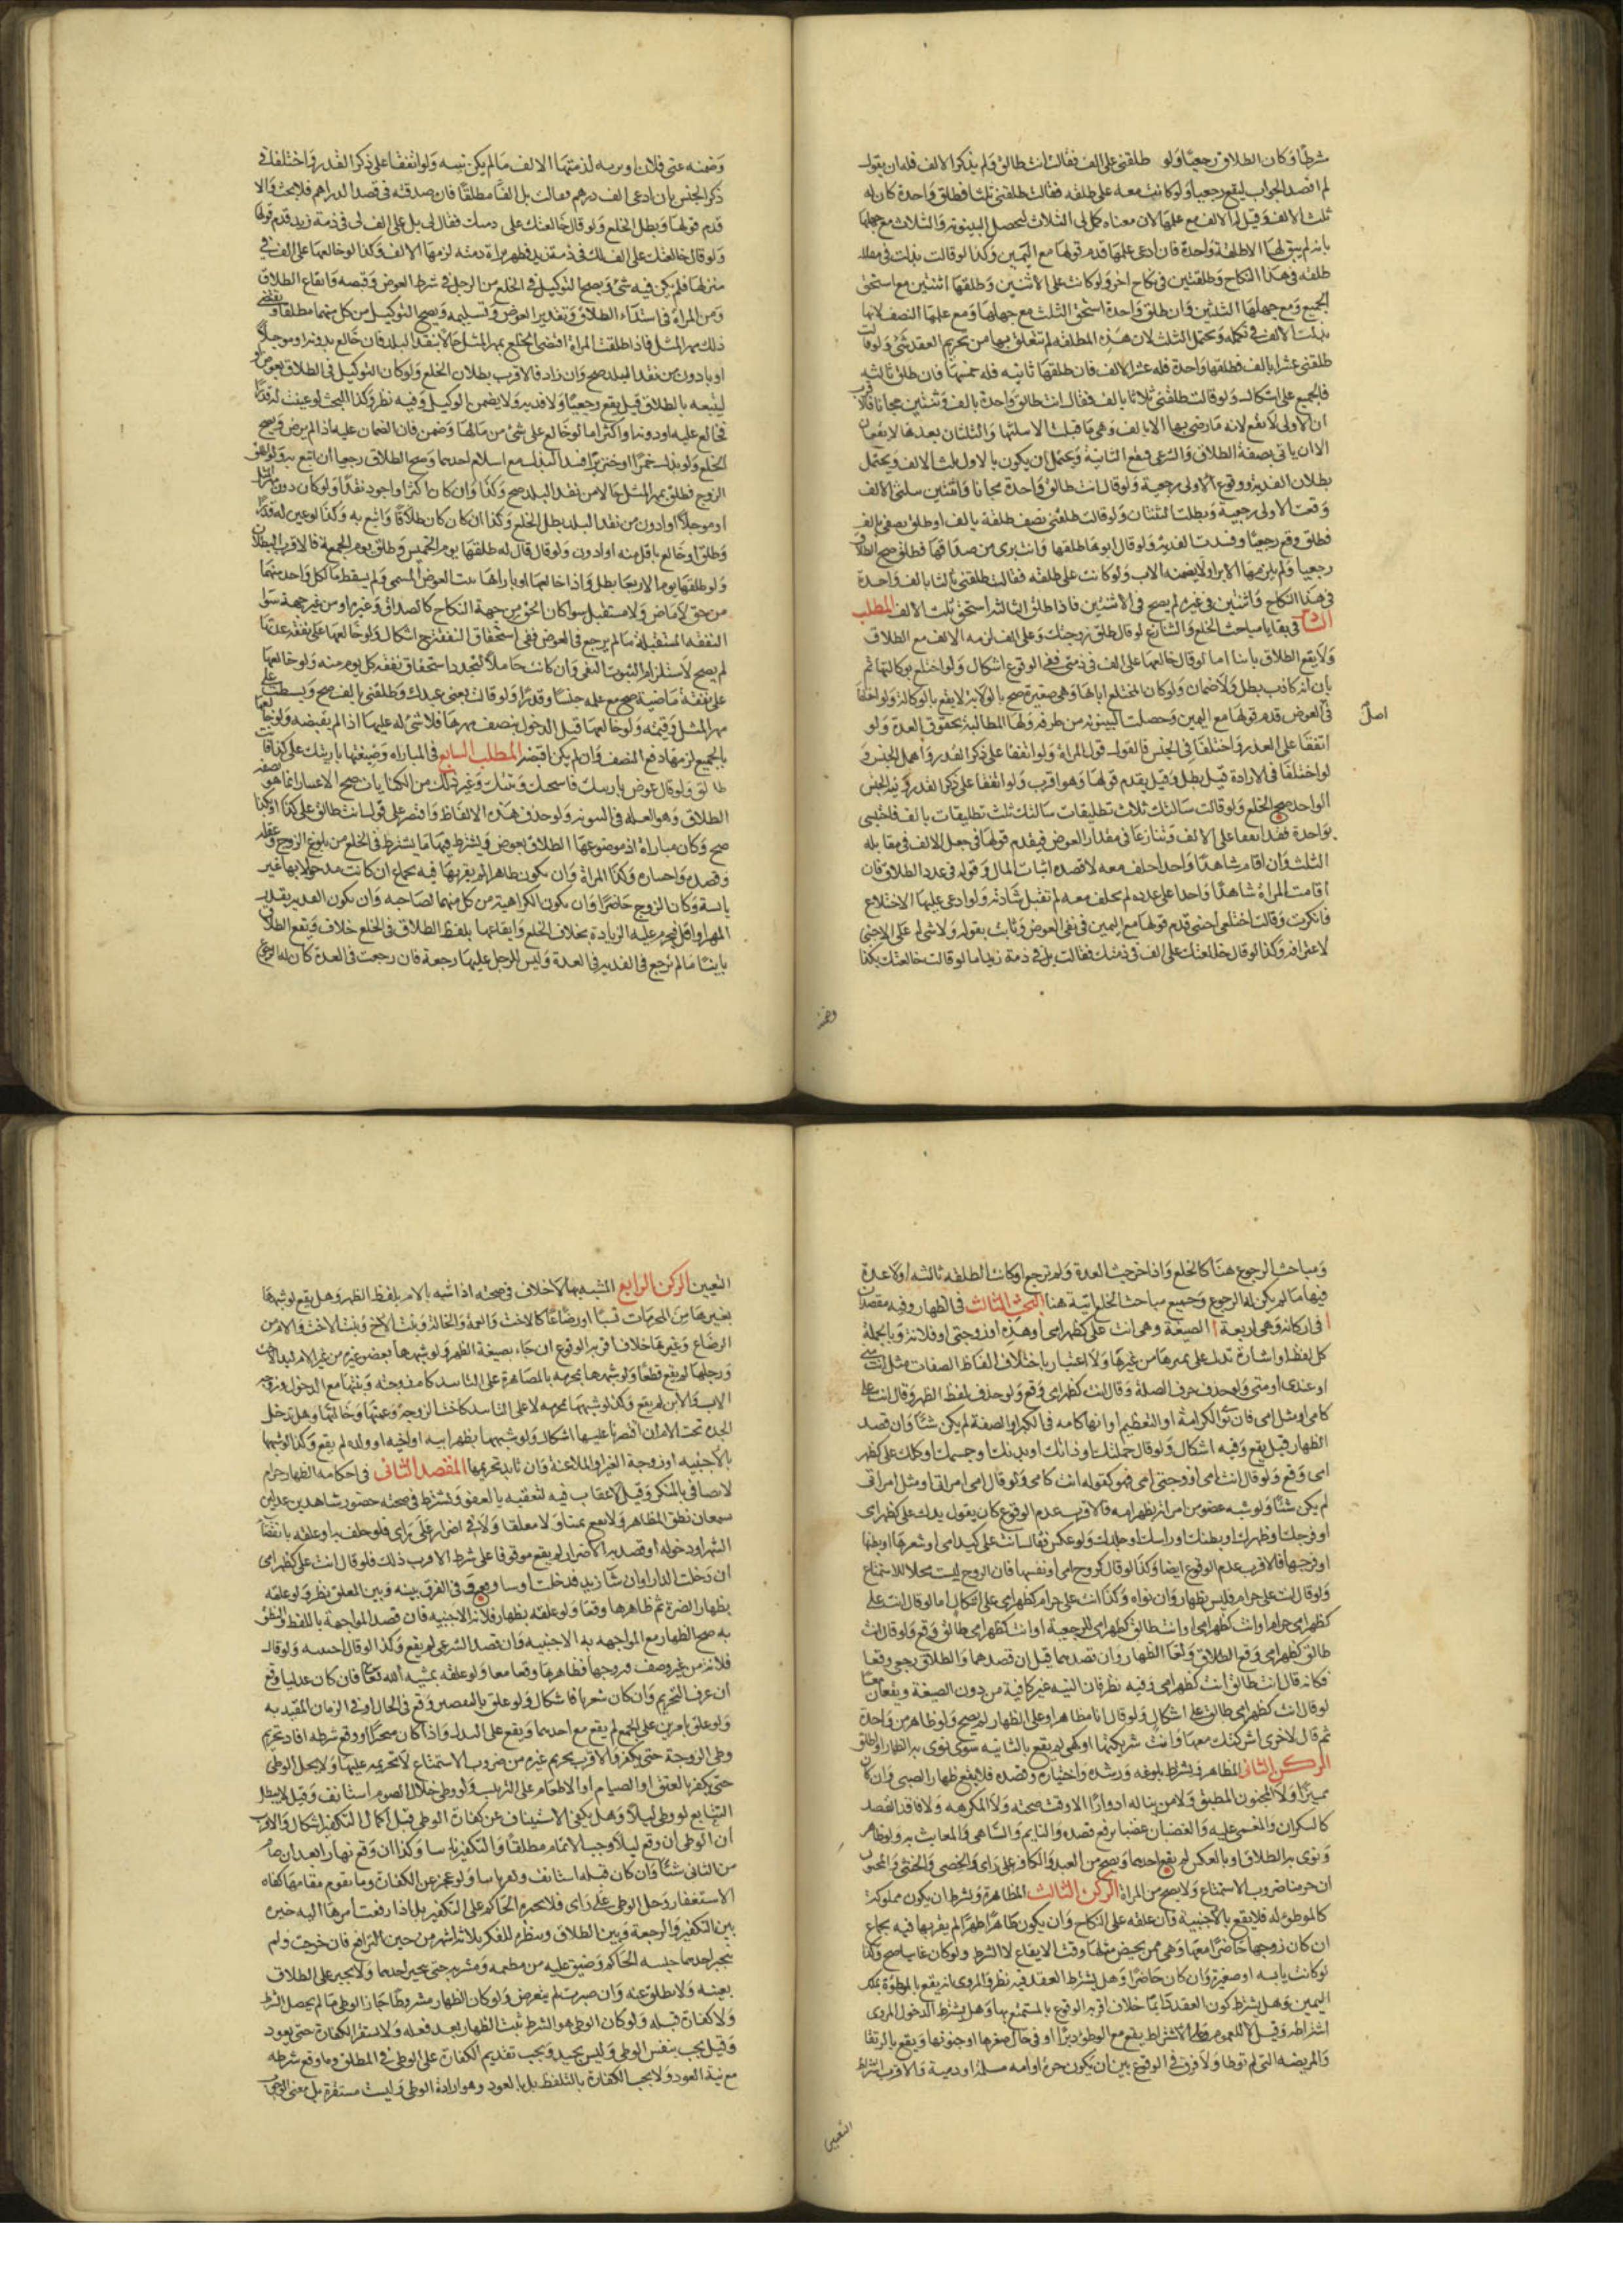 شرطا وكان الطلاق رجعيا ولو طلقني على الف فقال انت طالق ولم يذكر الالف فله ان يقول
لم اقصد الجواب ليقع رجعيا ولو كانت معه على طلقه فقالت طلقني ثلثا فطلق واحدة كان له
ثلث الالف وقيل له الالف مع علمها لان معناه كمل لي الثلاث لتحصل البينونه والثلاث مع جهلها
بانه لم يبق لها الا طلقه واحدة فان ادعى علمها قدم قولها مع اليمين وكذا لو قالت بذلت في مقابله
طلقه في هذا النكاح وطلقتين في نكاح اخر ولو كانت على اثنتين وطلقها اثنتين مع استحق
الجميع ومع جهلها الثلثين وان طلق واحدة استحق الثلث مع جهلها ومع علمها النصف لانها
بذلت الالف في تكمله ويحتمل الثلث لان هذه المطلقه لم تتعلق بها من تحريم العقد شئ ولو قالت
طلقني عشرا بالف فطلقها واحدة فله عشر الالف فان طلقها ثانيه فله خمسها فان طلق ثالثه
فالجميع على اشكال ولو قالت طلقني ثلاثا بالف فقال انت طالق واحدة بالف وثنتين مجانا فالاقرب
ان الاولى لا تقع لانه ما رضي بها الا بالف وهي ما قبلت الا بثلثها والثلتان بعدها لا يقعان
الا ان ياتي بصفة الطلاق والشرعي فيقع الثانية ويحتمل ان يكون بالاول ثلث الالف ويحتمل
بطلان الفديه ووقوع الاولى رجعية ولو قال انت طالق واحدة مجانا واثنتين بثلثي الالف
وقعت الاولى رجعية وبطلت الثنتان ولو قالت طلقني نصف طلقة بالف او طلق نصفي بالف
فطلق وقع رجعيا وفسدت الفديه ولو قال ابوها طلقها وانت بري من صداقها فطلق صح الطلاق
رجعيا ولم يلزمها الابراء ولا يضمنه الاب ولو كانت على طلقه فقالت طلقني ثلثا بالف واحدة
في هذا النكاح واثنتين في غيره لم يصح في الاثنتين فاذا طلق الثالثه استحق ثلث الالف المطلب
في بقايا مباحث الخلع والتنازع لو قال طلق زوجتك وعلي الف لزمه الالف مع الطلاق
ولا يقع الطلاق باينا اما لو قال خالعها على الف في ذمتي ففي الوقوع اشكال ولو اختلع بوكالتها ثم
بان انه كاذب بطل ولا ضمان ولو كان المختلع اباها وهي صغيرة صح بالولايه لا يقع بالوكالة ولو اختلفا
في اصل العوض قدم قولها مع اليمين وحصلت البينونه من طرفه ولها المطالبة بحقوق العدة ولو
اتفقا على القدر واختلفا في الجنس فالقول قول المراة ولو اتفقا على ذكر القدر واهمل الجنس و
لو اختلفا في الارادة قيل بطل وقيل يقدم قولها وهو اقرب ولو اتفقا على ذكر القدر ونيه الجنس
الواحد صح الخلع ولو قالت سالتك ثلاث تطليقات سالتك ثلث تطليقات بالف فاجبتني
بواحدة فقد اتفقا على الالف وتنازعا في مقدار العوض فيقدم قولها في جعل الالف في مقابله
الثلث وان اقام شاهدا واحدا حلف معه لا قصده اثبات المال وقوله في عدد الطلاق فان
اقامت المراة شاهدا واحدا على عدده لم يحلف معه لم تقبل شهادته ولو ادعى عليها الاختلاع
فانكرت وقالت اختلعني اجنبي قدم قولها مع اليمين في نفي العوض وثابت بقوله ولا شئ له على الاجنبي
لاعترافه وكذا لو قال خالعتك على الف في ذمتك فقالت بل في ذمة زيد اما لو قالت خالعتك بكذا
وضمنه
وضمنه عني فلان او يزنه لزمتها الالف ما لم يكن بينه ولو اتفقا على ذكر القدر واختلفا في
ذكر الجنس بان ادعى الف درهم فقالت بل الفا مطلقا فان صدقته في قصد الدراهم فلا بحث والا
قدم قولها وبطل الخلع ولو قال خالعتك على ذمتك فقال لي بل على الف لي في ذمة زيد قدم قولها
ولو قال خالعتك على الف لك في ذمة زيد فظهر براة ذمته لزمها الالف وكذا لو خالعها على الف في
منزلها فلم يكن فيه شئ ويصح التوكيل في الخلع من الرجل في شرط العوض وقبضه وايقاع الطلاق
ومن المراة في استدعاء الطلاق وتقدير العوض وتسليمه ويصح التوكيل من كل منهما مطلقا ويقتضي
ذلك مهر المثل فاذا طلقت المراة اقتضى الخلع بمهر المثل حالا بنقد البلد فان خالع بدونه او موجلا
او بادون من نقد البلد صح وان زاد فالاقرب بطلان الخلع ولو كان التوكيل في الطلاق بعوض
ليتبعه بالطلاق قيل يقع رجعيا ولا فديه ولا يضمن الوكيل وفيه نظر وكذا البحث لو عينت له قدرا
فخالع عليه او دونه او اكثر اما لو خالع على شئ من مالها وضمن فان الضمان عليه اذا لم يرض ويصح
الخلع ولو بذلت خمرا او خنزيرا فسد البذل مع اسلام احدهما وصح الطلاق رجعيا ان اتبع به ولو اطلق
الزوج فطلق بمهر المثل حالا من نقد البلد صح وكذا وان كان اكثر او اجود نقدا ولو كان دون مهر المثل
او موجلا او ادون من نقد البلد بطل الخلع وكذا ان كان كان طلاقا واتبع به وكذا لو عين له قدرا
وطلق او خالع باقل منه او ادون ولو قال قال له طلقها يوم الخميس وطلق يوم الجمعة فالاقرب البطلان
ولو طلقها يوم الاربعا بطل واذا خالعها او باراها ثبت العوض المسمى ولم يسقط مال كل واحد منهما
من حق لا ماض ولا مستقبل سوا كان الحق من جهة النكاح كالصداق وغيره او من غير جهته سوى
النفقه المستقبلة ما لم يرجع في العوض ففي استحقاق النفقه ح اشكال ولو خالعها على نفقه عدتها
لم يصح لاستلزام الثبوت النفي وان كانت حاملا لتجدد استحقاق نفقه كل يوم منه ولو خالعها
على نفقة ماضية صح مع علمه جنسا وقدرا ولو قالت بعني عبدك وطلقني بالف صح وبسطت على
مهر المثل وقيمته ولو خالعها قبل الدخول بنصف مهرها فلا شئ له عليها اذا لم يقبضه ولو خالعها
بالجميع لزمها دفع النصف وان لم يكن اقبضه المطلب السابع في المباراه وصيغتها بارئتك على كذا فانت
طالق ولو قال عوض بارئتك فاسختك وبنتك وغير ذلك من الكنايات صح الاعتبار انما هو بصيغه
الطلاق وهو العله في البينونه ولو حذف هذه الالفاظ واقتصر على قوله انت طالق على كذا او بكذا
صح وكان مباراة اذ موضوعها الطلاق بعوض ويشترط فيها ما يشترط في الخلع من بلوغ الزوج وعقله
وقصده واختياره وكذا المراة وان يكون طاهرا لم يقربها فيه بجماع ان كانت مدخولا بها غير
يائسة وكان الزوج حاضرا وان يكون الكراهية من كل منهما لصاحبه وان يكون الفديه بقدر
المهر او اقل فيحرم عليه الزيادة بخلاف الخلع وايقاعها بلفظ الطلاق في الخلع خلاف ويقع الطلاق
باينا ما لم ترجع في الفديه في العدة وليس للرجل عليها رجعة فان رجعت في العدة كان له الرجوع
ومباحث الرجوع هنا كالخلع واذا خرجت العدة ولم ترجع او كانت الطلقه ثالثه او لا عدة
فيها ما لم يكن له الرجوع وجميع مباحث الخلع اتية هنا البحث الثالث في الظهار وفيه مقصدان
ا في اركانه وهي اربعة ا الصيغة وهي انت علي كظهر امي او هذه او زوجتي او فلانة وبالجملة
كل لفظ او اشارة تدل على تميزها من غيرها ولا اعتبار باختلاف الفاظ الصفات مثل انت مني
او عندي او معي ولو حذف حرف الصلة وقال انت كظهر امي وقع ولو حذف لفظ الظهر وقال انت علي
كامي او مثل امي فان نوى الكرامة او التعظيم او انها كامه في الكبر او الصفة لم يكن شئا وان قصد
الظهار قيل يقع وفيه اشكال ولو قال جملتك او ذاتك او بدنك او جسمك او كلك علي كظهر
امي وقع ولو قال انت امي او زوجتي امي فهو كقوله انت كامي ولو قال امي امراتي او مثل امراتي
لم يكن شئا ولو شبه عضو من امراته بظهر امه فالاقرب عدم الوقوع كان يقول يدك علي كظهر امي
او فرجك وظهرك او بطنك او راسك او جلدك ولو عكس فقال انت علي كيد امي او شعرها او بطنها
او فرجها فالاقرب عدم الوقوع ايضا وكذا لو قال كروح امي او نفسها فان الروح ليست محلا للاستمتاع
ولو قال انت علي حرام فليس بظهار وان نواه وكذا انت علي حرام كظهر امي على اشكال اما لو قال انت علي
كظهر امي حرام او انت كظهر امي او انت طالق كظهر امي للرجعية او انت كظهر امي طالق وقع ولو قال انت
طالق كظهر امي وقع الطلاق ولغا الظهار وان قصدهما قيل ان قصدهما والطلاق رجعي وقعا
فكانه قال انت طالق انت كظهر امي وفيه نظر فان النيه غير كافية من دون الصيغة ويقعان معا
لو قال انت كظهر امي طالق على اشكال ولو قال انا مظاهر او علي الظهار لم يصح ولو ظاهر من واحدة
ثم قال لاخرى اشركتك معها وانت شريكتها او كهي لم يقع بالثانيه سوى نوى به الظهار او اطلق
الركن الثاني المظاهر ويشترط بلوغه ورشده واختياره وقصده فلا يقع ظهار الصبي وان كان
مميزا ولا المجنون المطبق ولا من يناله ادوارا الا وقت صحته ولا المكره ولا فاقد القصد
كالسكران والمغمى عليه والغضبان غضبا يرفع قصده والنايم والساهي والمعابث به ولو ظاهر
ونوى به الطلاق او بالعكس لم يقع احدهما ويصح من العبد والكافر على راي والخصي والخنثى والمجبوب
ان حرمنا ضروب الاستمتاع ولا يصح من المراة الركن الثالث المظاهرة ويشترط ان يكون مملوكة
كالموطوءة له فلا يقع بالاجنبية وان علقه على النكاح وان يكون طاهرا طهرا لم يقربها فيه بجماع
ان كان زوجها حاضرا معها وهي ممن يحيض مثلها وقت الايقاع لا الشرط ولو كان غايبا صح وكذا
لو كانت يايسه او صغيرة وان كان حاضرا وهل يشترط العقد فيه نظر والمروي انه يقع بالموطؤة بملك
اليمين وهل يشترط كون العقد دايما خلاف اقربه الوقوع بالمستمتع بها وهل يشترط الدخول المروي
اشتراطه وقيل لا للعموم وعلى الاشتراط يقع مع الوطؤ دبرا او في حال صغرها او جنونها ويقع بالرتقا
والمريضه التي لم توطا ولا فرق في الوقوع بين ان يكون حرة او امه مسلمة او دمية والاقرب اشتراط
التعيين
التعيين الركن الرابع المشبه بها لا خلاف في صحته اذا شبه بالام بلفظ الظهر وهل يقع لو شبهها
بغيرها من المحرمات نسبا او رضاعا كالاخت والعمة والخالة وبنت الاخ وبنت الاخت والام من
الرضاع وغيرها خلاف اقربه الوقوع ان جاء بصيغة الظهر ولو شبهها بعضو غيره من غير الام ليد الاخت
ورجلها لم يقع قطعا ولو شبهها بمحرمه بالمصاهرة على التابيد كام زوجته وبنتها مع الدخول وزوجه
الاب والابن لم يقع وكذا لو شبهها بمحرمه لا على التابيد كاخت الزوجة وعمتها وخالتها وهل تدخل
الجدة تحت الام ان اقتصرنا عليها اشكال ولو شبهها بظهر ابيه او اخيه او ولده لم يقع وكذا لو شبهها
بالاجنبيه او زوجة الغير او الملاعنة وان تابد تحريمها المقصد الثاني في احكامه الظهار حرام
لاتصافه بالمنكر وقيل لا عقاب فيه لتعقبه بالعفو ويشترط في صحته حضور شاهدين عدلين
يسمعان نطق المظاهر ولا يقع يمينا ولا معلقا ولا في اضرار على راي فلو حلف به او علقه بانقضا
الشهر او دخوله او قصد به الاضرار لم يقع موقوفا على شرط الاقرب ذلك فلو قال انت علي كظهر امي
ان دخلت الدار او ان شا زيد فدخلت او شا وقع وفي الفرق بينه وبين المعلق نظر ولو علقه
بظهار الضرة ثم ظاهرها وقعا ولو علقه بظهار فلانة الاجنبيه فان قصد المواجهة باللفظ والنطق
به صح الظهار مع المواجهه به الاجنبيه وان قصد الشرعي لم يقع وكذا لو قال اجنبيه ولو قال
فلانة من غير وصف فتزوجها فظاهرها وقعا معا ولو علقه بمشيه الله تعالى فان كان عدليا وقع
ان عرف التحريم وان كان شعريا فاشكال ولو علق بالنقيضين وقع في الحال او في الزمان المقيد به
ولو علق بامرين على الجمع لم يقع مع احدهما ويقع على البدل واذا كان منجزا او وقع شرطه افاد تحريم
وطي الزوجة حتى يكفر والاقرب تحريم غيره من ضروب الاستمتاع لا تحريمه عليها ولا يحل الوطي
حتى يكفر بالعتق او الصيام او الاطعام على الترتيب ولو وطي خلال الصوم استانف وقيل لا يبطل
التتابع لو وطي ليلا وهل يكفي الاستيناف عن كفارة الوطي قبل اكمال التكفير اشكال والاقرب
ان الوطي ان وقع ليلا وجب الاتمام مطلقا والتكفير ثانيا وكذا ان وقع نهارا بعد ان صام
من الثاني شئا وان كان قبله استانف وكفر ثانيا ولو عجز عن الكفارة وما يقوم مقامها كفاه
الاستغفار وحل الوطي على راي فلا يجبره الحاكم على التكفير بل اذا رفعت امرها اليه خيره
بين التكفير والرجعة وبين الطلاق وينظر للفكر ثلاثة اشهر من حين الترافع فان خرجت ولم
يختر احدهما حبسه الحاكم وضيق عليه من مطعمه ومشربه حتى يختار احدهما ولا يجبر على الطلاق
بعينه ولا يطلق عنه وان صبرت لم يتعرض ولو كان الظهار مشروطا جاز الوطي ما لم يحصل الشرط
ولا كفارة قبله ولو كان الوطي هو الشرط ثبت الظهار بعد فعله ولا تستقر الكفارة حتى يعود
وقيل يجب بنفس الوطي وليس بجيد ويجب تقديم الكفارة على الوطي في المطلق وما وقع شرطه
مع نية العود ولا يجب الكفارة بالتلفظ بل بالعود وهو ارادة الوطي وليست مستقرة بل معنى الوجوب